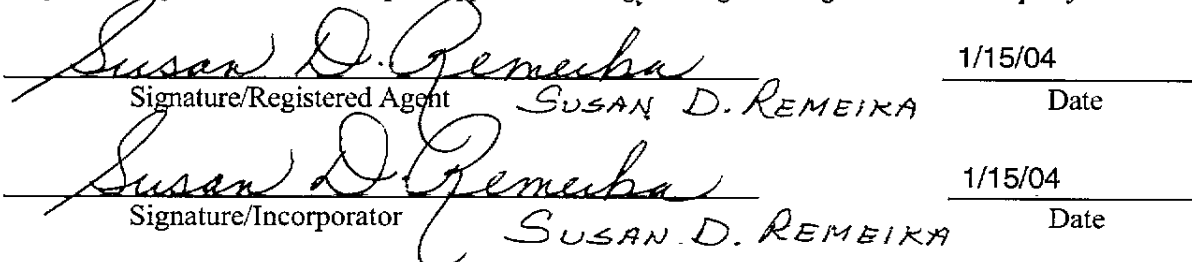 Susan D. Remeika 1/15/04
Signature/Registered Agent SUSAN D. REMEIKA Date
Susan D. Remeika 1/15/04
Signature/Incorporator SUSAN D. REMEIKA Date